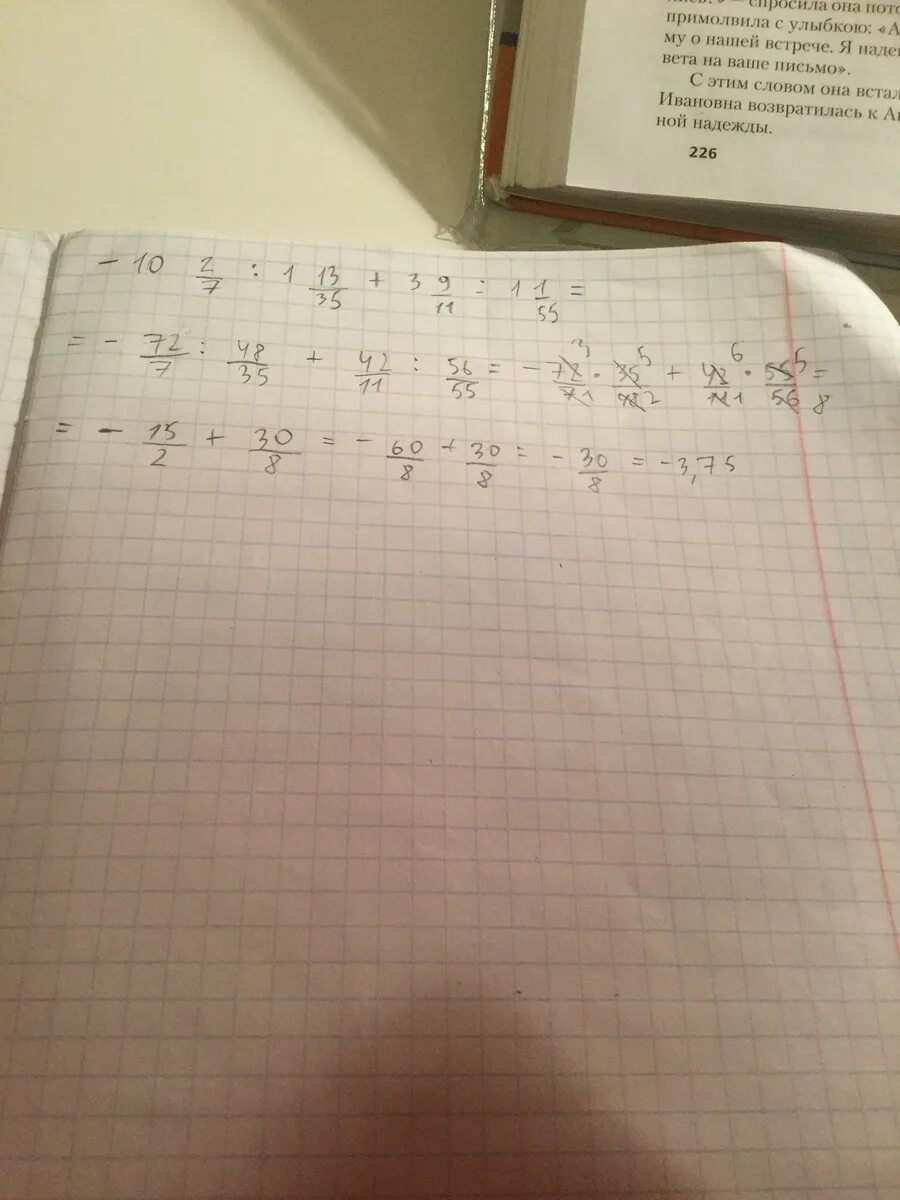 спросила она пото
примолвила с улыбкою: «А
му о нашей встрече. Я наде
вета на ваше письмо».
С этим словом она встал
Ивановна возвратилась к А
ной надежды.
226
− 10 2/7 : 1 13/35 + 3 9/11 : 1 1/55 =
= − 72/7 : 48/35 + 42/11 : 56/55 = − 72/7 3/1 · 35/48 5/2 + 42/11 6/1 · 55/56 5/8 =
= − 15/2 + 30/8 = − 60/8 + 30/8 = − 30/8 = −3,75